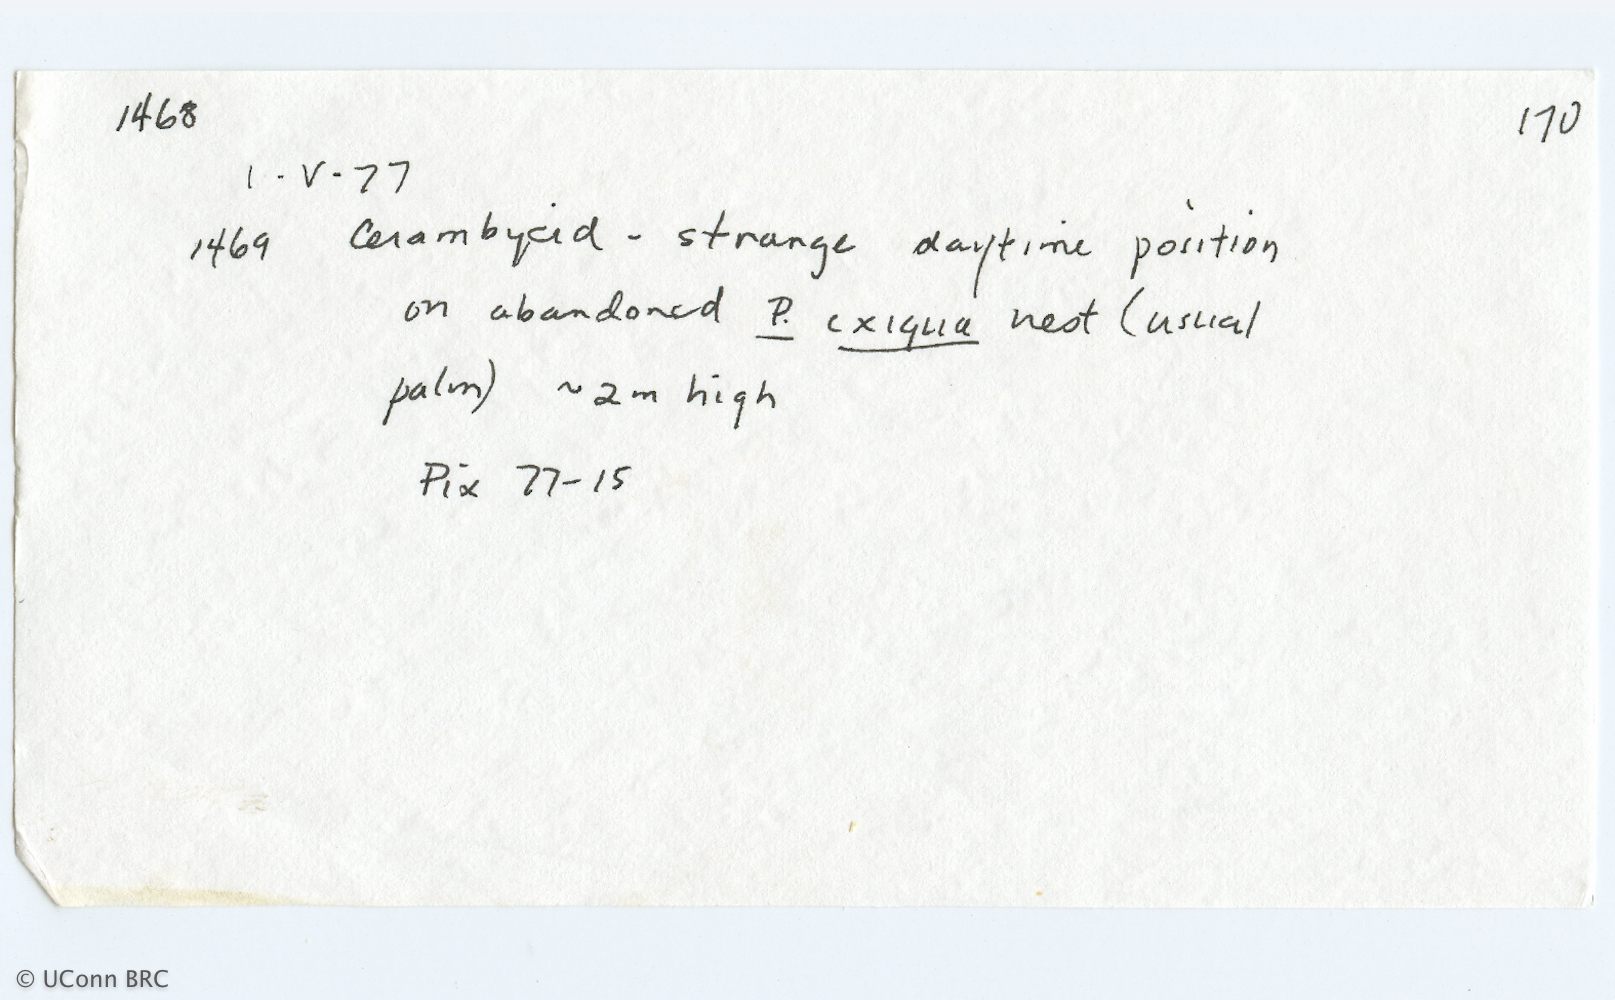 1468
170
1-V-77
1469 Cerambycid - strange daytime position
on abandoned P. exigua nest (usual
palm) ~2m high
Pix 77-15
© UConn BRC